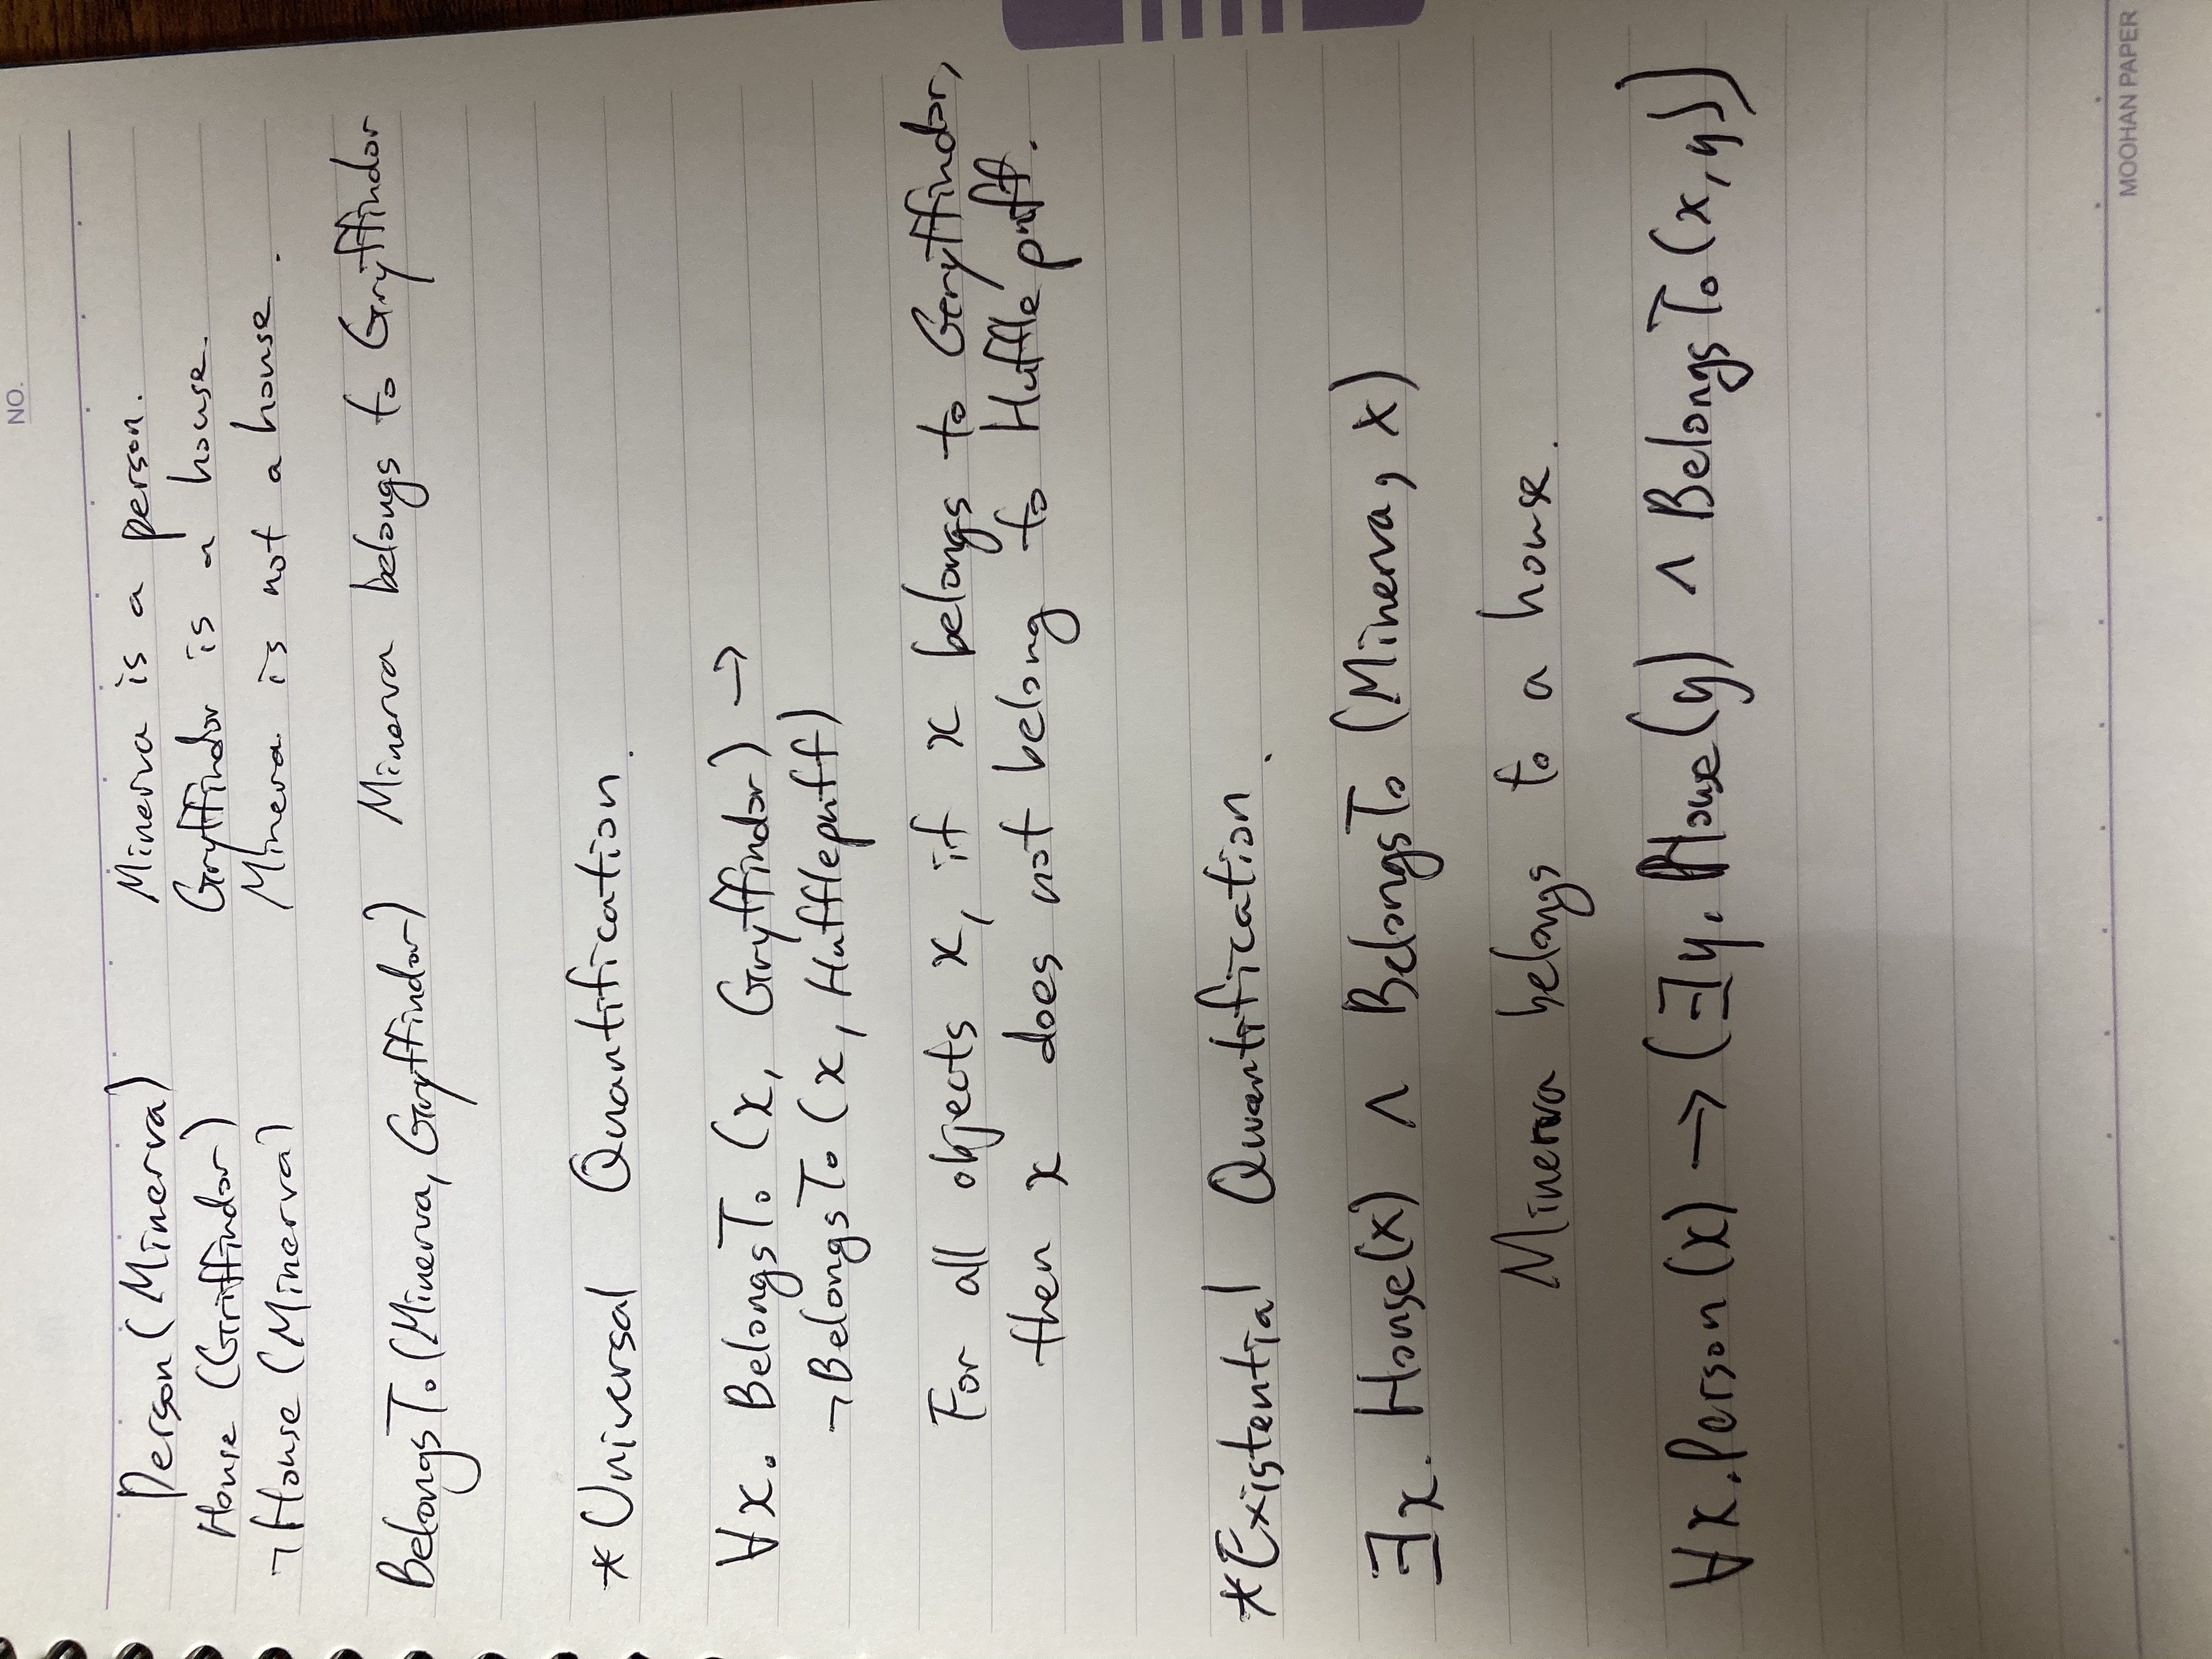 NO.
Person (Minerva) Minerva is a person.
House (Griffindor) Gryffindor is a house.
¬House (Minerva) Minera is not a house.
BelongsTo (Minerva, Gryffindor) Minerva belongs to Gryffindor
*Universal Quantification.
∀x. BelongsTo (x, Gryffindor) →
¬BelongsTo (x, Hufflepuff)
For all objects x, if x belongs to Geryffindor,
then x does not belong to Hufflepuff.
*Existential Quantification.
∃x. House(x) ∧ BelongsTo (Minerva, x)
Minerva belongs to a house.
∀x. Person(x) → (∃y. House(y) ∧ BelongsTo(x, y))
MOOHAN PAPER